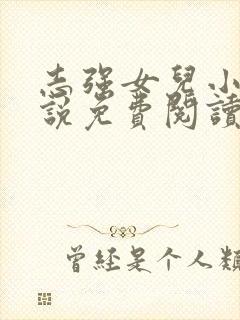 志强女兒小
説免費閱讀
曾经是个人類